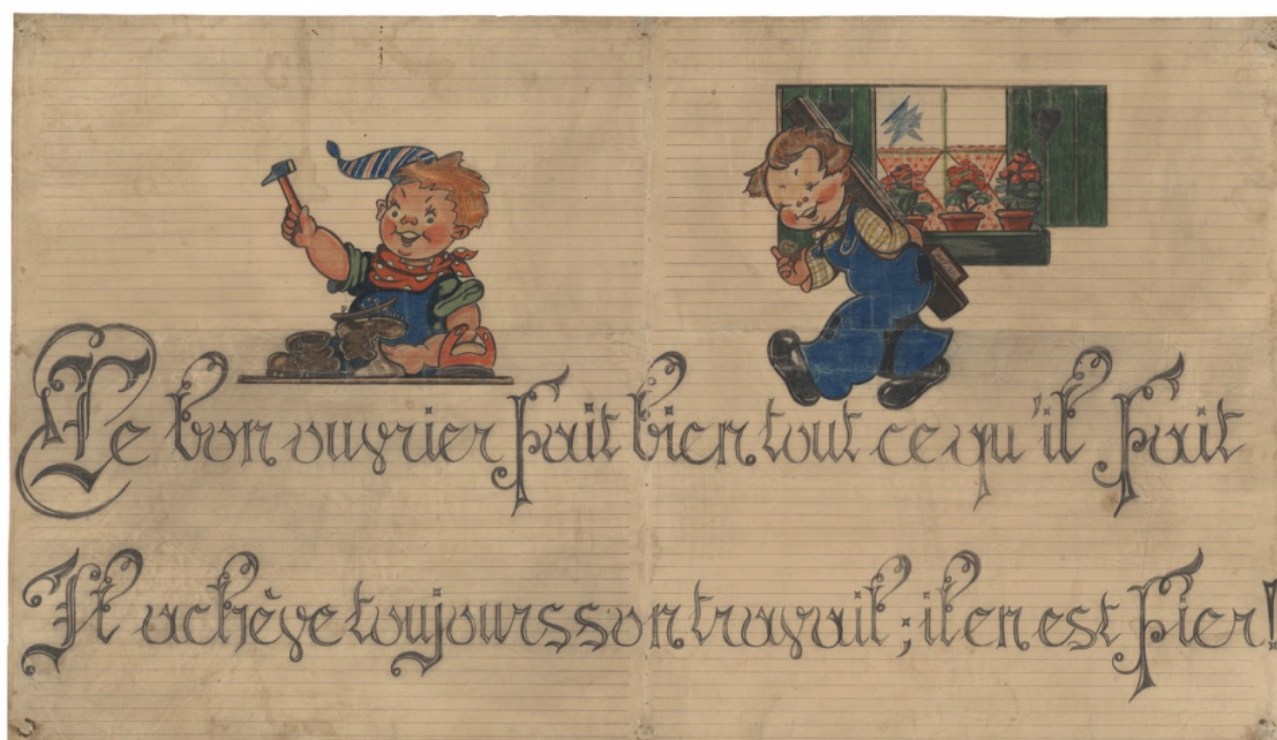 Le bon ouvrier fait bien tout ce qu'il fait
Il achève toujours son travail ; il en est fier !